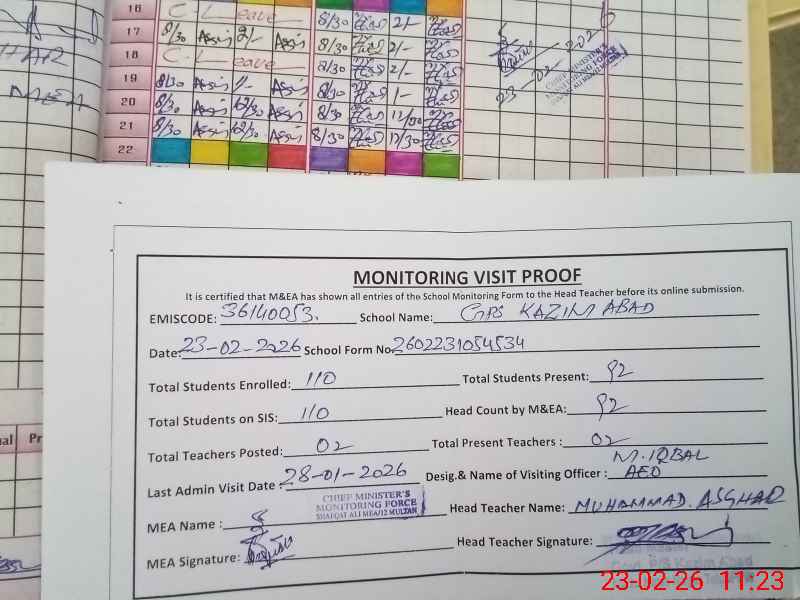 16 C. Leave 8/30 2/-
17 8/30 2/- 8/30 2/-
18 C. Leave 8/30 2/-
19 8/30 1/- 8/30 1/-
20 8/30 12/30 8/30 12/00
21 8/30 12/30 8/30 12/30
22
23-02-2026
CHIEF MINISTER'S
MONITORING FORCE
HAR
MEA
MONITORING VISIT PROOF
It is certified that M&EA has shown all entries of the School Monitoring Form to the Head Teacher before its online submission.
EMISCODE: 36140053. School Name: GPS KAZIM ABAD
Date: 23-02-2026 School Form No 2602231054534
Total Students Enrolled: 110 Total Students Present: 92
Total Students on SIS: 110 Head Count by M&EA: 92
Total Teachers Posted: 02 Total Present Teachers : 02
Last Admin Visit Date : 28-01-2026 Desig.& Name of Visiting Officer : M. IQBAL AEO
MEA Name : CHIEF MINISTER'S MONITORING FORCE SHAFQAT ALI MEA/12 MULTAN Head Teacher Name: MUHAMMAD. ASGHAR
MEA Signature: Head Teacher Signature:
Govt. P/S Kazim Abad
al Pr
23-02-26 11:23